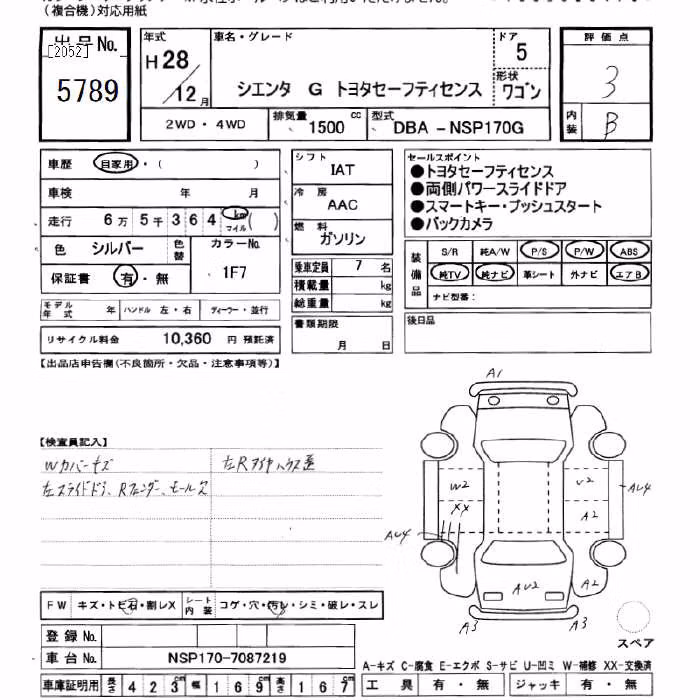 （複合機）対応用紙
出品 No.
[2052]
5789
年式
H 28 / 12 月
車名・グレード
シエンタ G トヨタセーフティセンス
ドア
5
形状
ワゴン
評価点
3
内装
B
2WD・4WD
排気量 1500 cc
型式 DBA-NSP170G
車歴 自家用・( )
車検 年 月
走行 6万 5千 3 6 4 km マイル ( )
色 シルバー 色替
カラーNo.
1F7
保証書 有・無
シフト
IAT
冷房
AAC
燃料
ガソリン
乗車定員 7 名
積載量 kg
総重量 kg
書類期限
月 日
セールスポイント
●トヨタセーフティセンス
●両側パワースライドドア
●スマートキー・プッシュスタート
●バックカメラ
装備品
S/R 純A/W P/S P/W ABS
純TV 純ナビ 革シート 外ナビ エアB
ナビ型番：
後日品
モデル年式 年 ハンドル 左・右 ディーラー・並行
リサイクル料金 10,360 円 預託済
【出品店申告欄(不良箇所・欠品・注意事項等)】
【検査員記入】
Wカバーキズ
左Rタイヤハウス歪
左スライドドア、Rフェンダー、モールズ
A1
W2
U2
XX
A2
AU4
AU4
AU2
A2
A3
A3
スペア
FW キズ・トビ石・割レX シート内装 コゲ・穴・汚レ・シミ・破レ・スレ
登録 No.
車台 No. NSP170-7087219
A-キズ C-腐食 E-エクボ S-サビ U-凹ミ W-補修 XX-交換済
車庫証明用 長さ 4 2 3 cm 幅 1 6 9 cm 高さ 1 6 7 cm
工具 有・無 ジャッキ 有・無